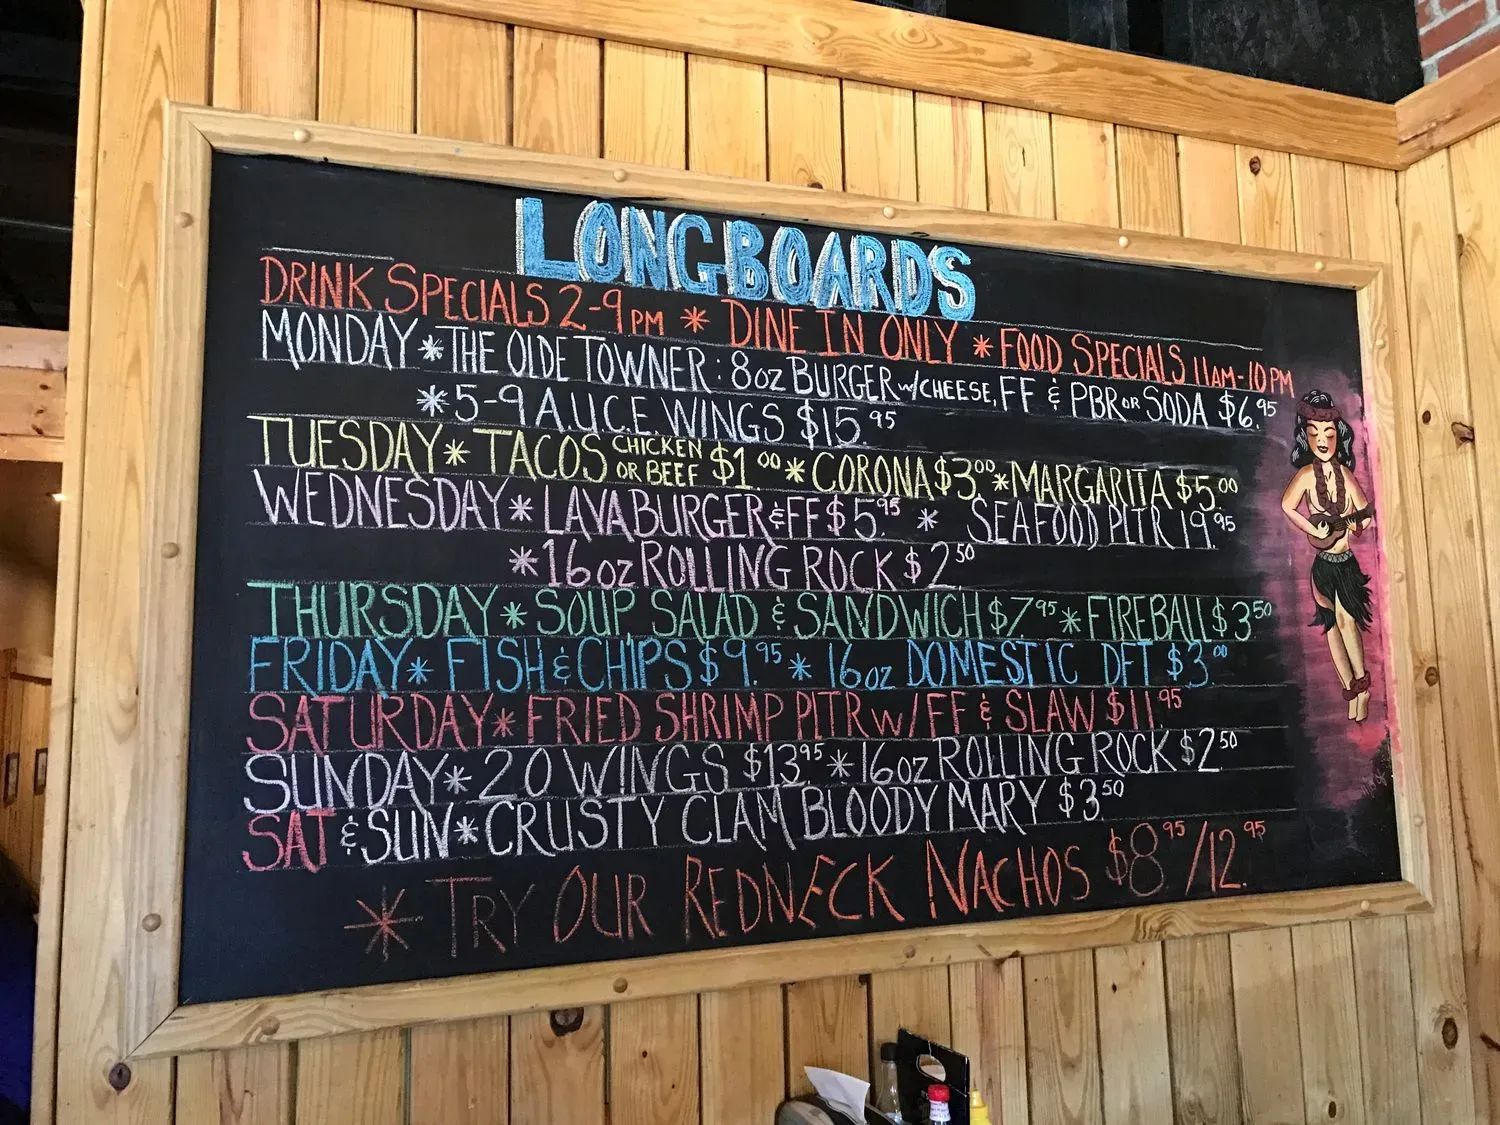 LONGBOARDS
DRINK SPECIALS 2-9PM * DINE IN ONLY * FOOD SPECIALS 11AM-10PM
MONDAY * THE OLDE TOWNER: 8oz BURGER w/CHEESE, FF & PBR OR SODA $6.95
* 5-9 A.U.C.E. WINGS $15.95
TUESDAY * TACOS CHICKEN OR BEEF $1.00 * CORONA $3.00 * MARGARITA $5.00
WEDNESDAY * LAVA BURGER & FF $5.95 * SEAFOOD PLTR 19.95
* 16oz ROLLING ROCK $2.50
THURSDAY * SOUP, SALAD & SANDWICH $7.95 * FIREBALL $3.50
FRIDAY * FISH & CHIPS $9.95 * 16oz DOMESTIC DFT $3.00
SATURDAY * FRIED SHRIMP PLTR w/FF & SLAW $11.95
SUNDAY * 20 WINGS $13.95 * 16oz ROLLING ROCK $2.50
SAT & SUN * CRUSTY CLAM BLOODY MARY $3.50
* TRY OUR REDNECK NACHOS $8.95/12.95